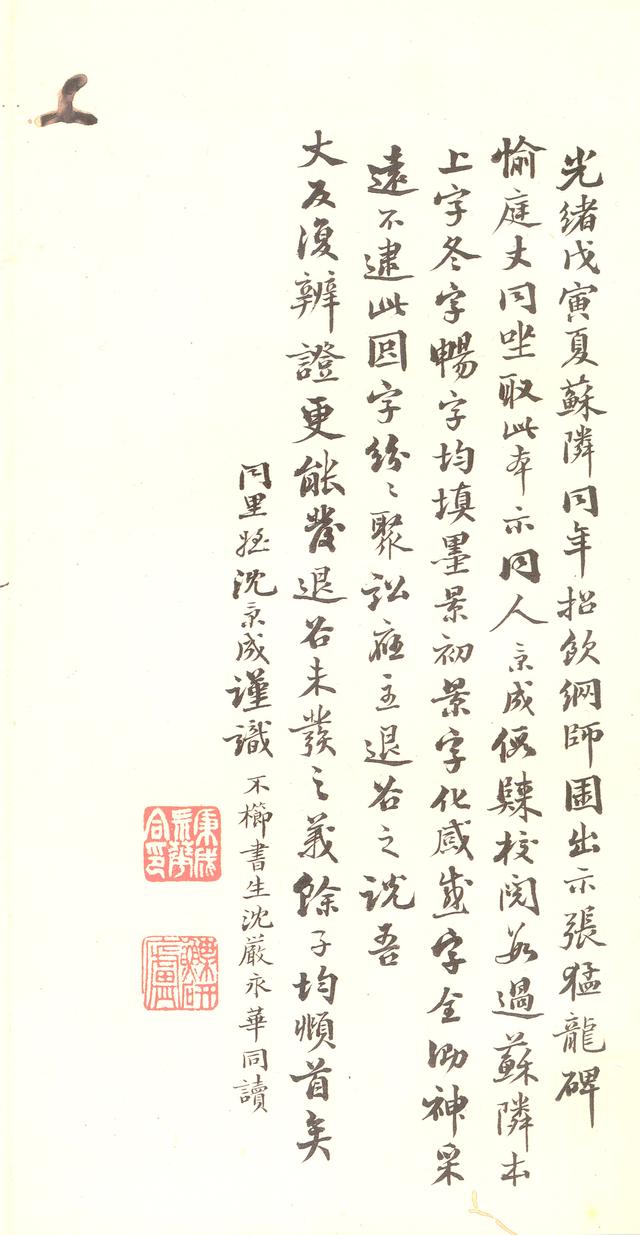 光緒戊寅夏蘇隣同年招飲網師園出示張猛龍碑
愉庭丈同坐取此本示同人京成假歸校閱數過蘇隣本
上字冬字暢字均填墨景初景字化感盛字全泐神采
遠不逮此固字紛〻聚訟雖主退谷之說吾
丈反復辨證更能發退谷未發之義餘子均頫首矣
同里姪沈京成謹識
不櫛書生沈嚴永華同讀